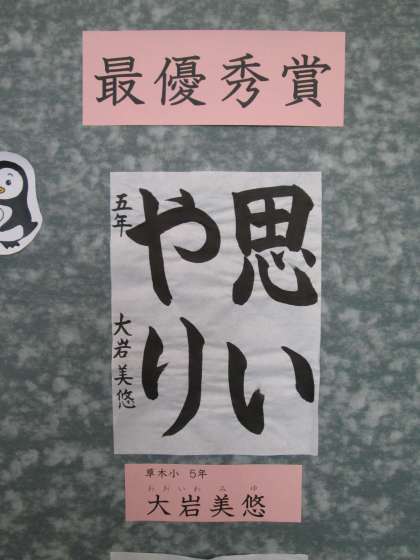 最優秀賞
思い
やり
五年 大岩美悠
草木小 5年
おおいわ みゆ
大岩美悠